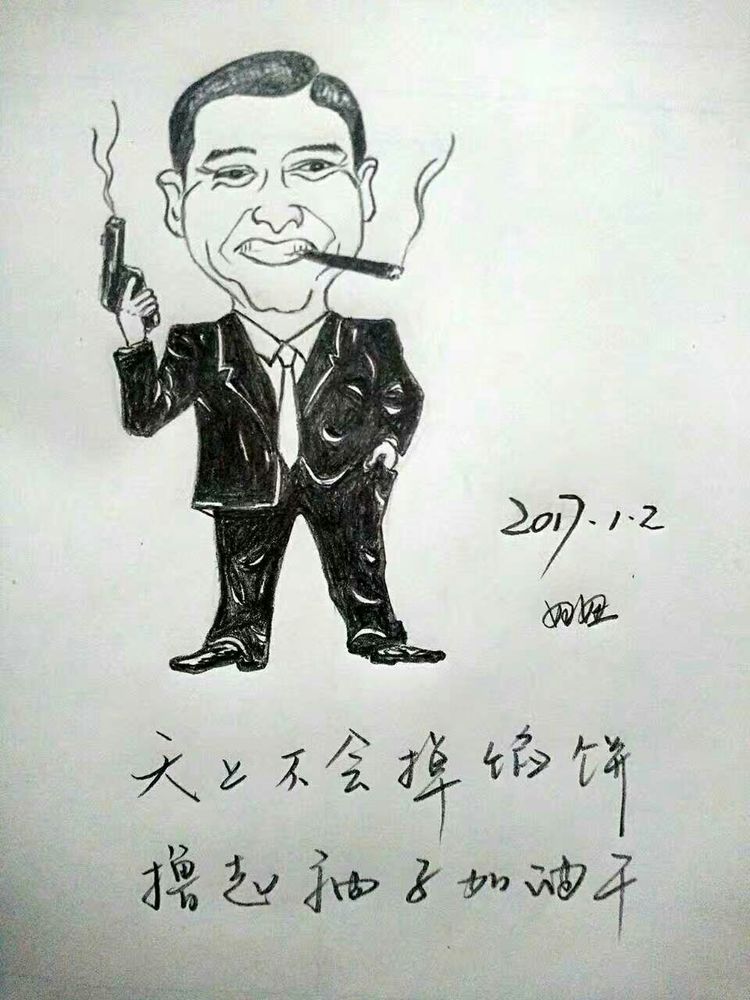 2017.1.2
妞妞
天上不会掉馅饼
撸起袖子加油干